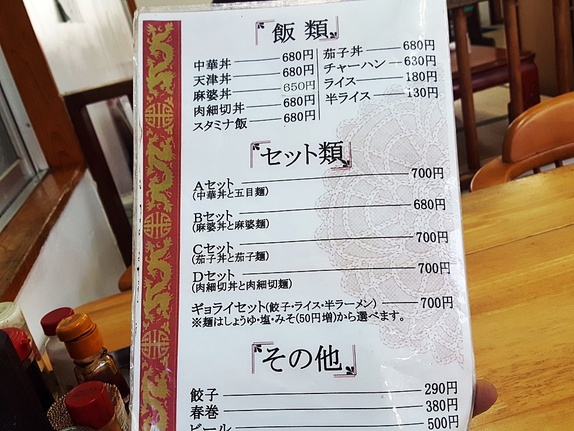 飯類
中華丼 680円
天津丼 680円
麻婆丼 650円
肉細切丼 680円
スタミナ飯 680円
茄子丼 680円
チャーハン 630円
ライス 180円
半ライス 130円
セット類
Aセット 700円
(中華丼と五目麺)
Bセット 680円
(麻婆丼と麻婆麺)
Cセット 700円
(茄子丼と茄子麺)
Dセット 700円
(肉細切丼と肉細切麺)
ギョライセット(餃子・ライス・半ラーメン) 700円
※麺はしょうゆ・塩・みそ(50円増)から選べます。
その他
餃子 290円
春巻 380円
ビール 500円